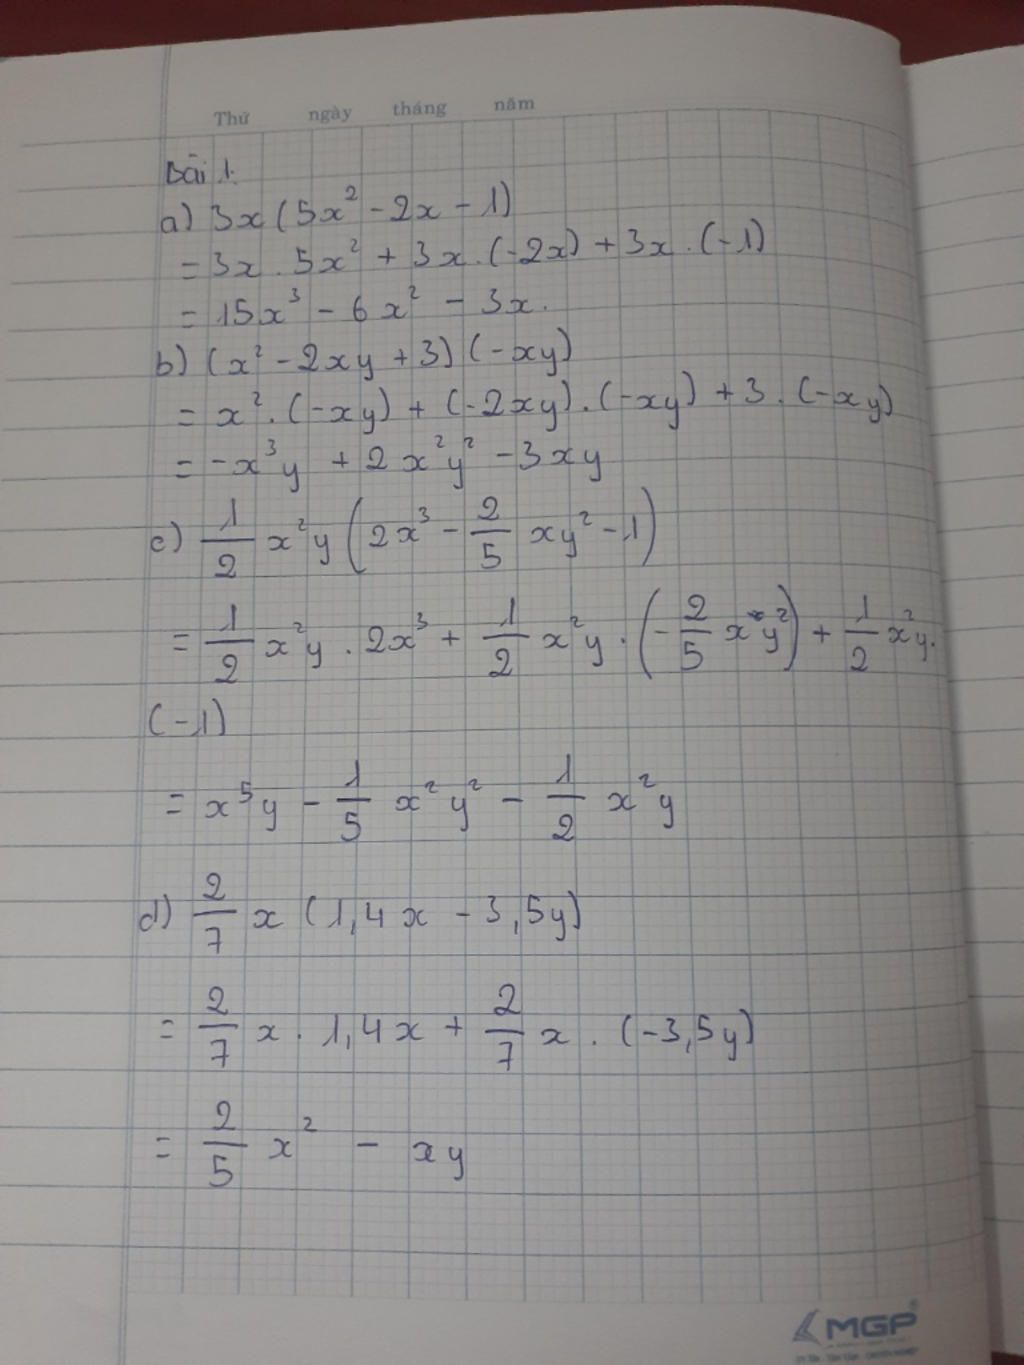 Thứ ngày tháng năm
Bài 1.
a) 3x (5x² - 2x - 1)
= 3x . 5x² + 3x . (-2x) + 3x . (-1)
= 15x³ - 6x² - 3x.
b) (x² - 2xy + 3) (-xy)
= x² . (-xy) + (-2xy) . (-xy) + 3 . (-xy)
= -x³y + 2x²y² - 3xy
c) 1/2 x²y (2x³ - 2/5 xy² - 1)
= 1/2 x²y . 2x³ + 1/2 x²y . (-2/5 xy²) + 1/2 x²y .
(-1)
= x⁵y - 1/5 x²y² - 1/2 x²y
d) 2/7 x (1,4x - 3,5y)
= 2/7 x . 1,4x + 2/7 x . (-3,5y)
= 2/5 x² - xy
MGP